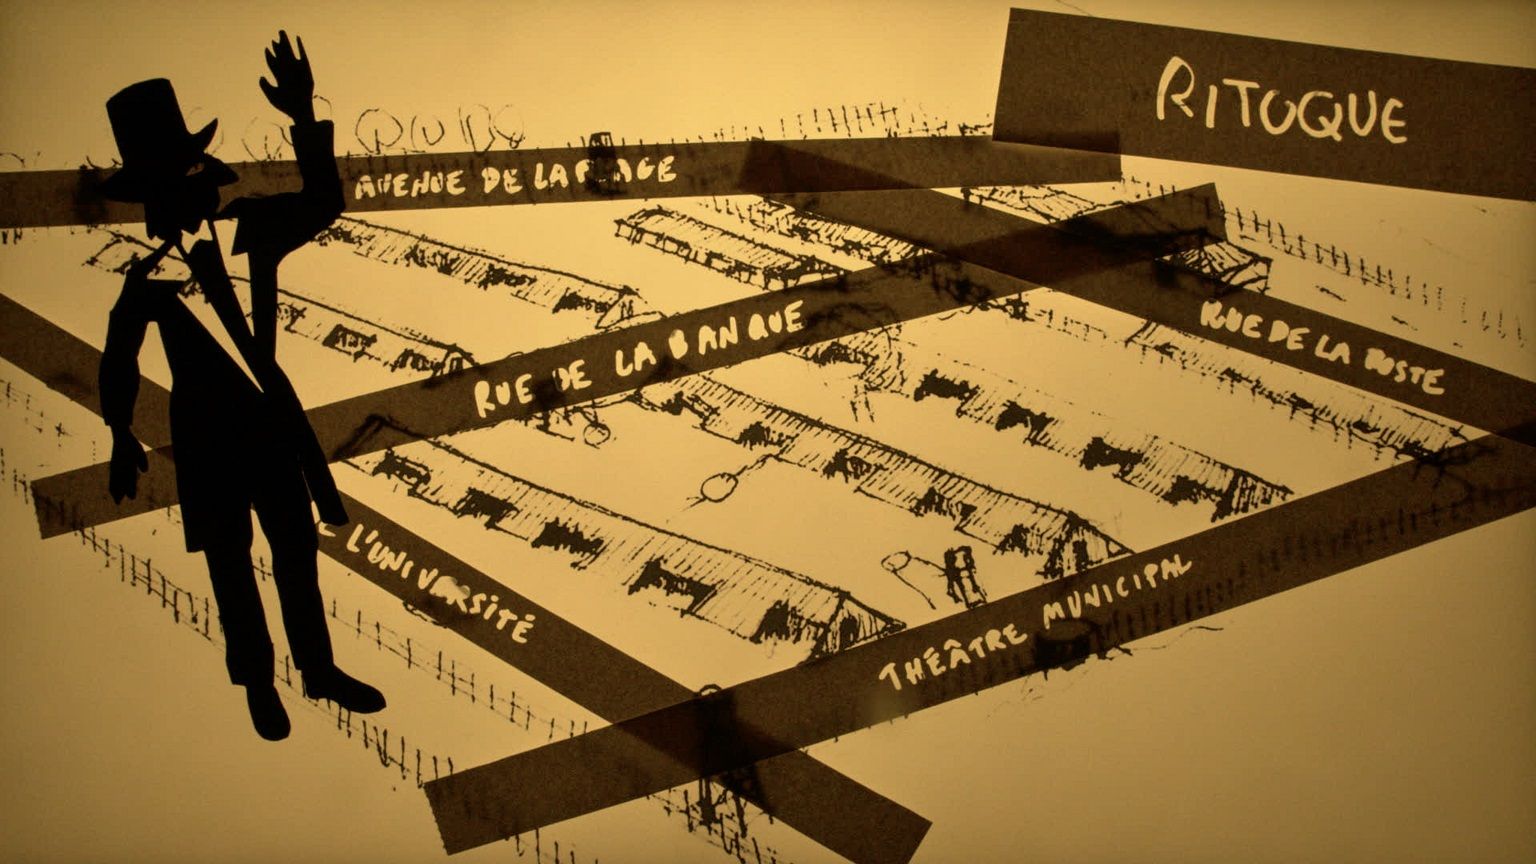 RITOQUE
AVENUE DE LA PLAGE
RUE DE LA BANQUE
RUE DE LA POSTE
L'UNIVERSITÉ
THÉÂTRE MUNICIPAL